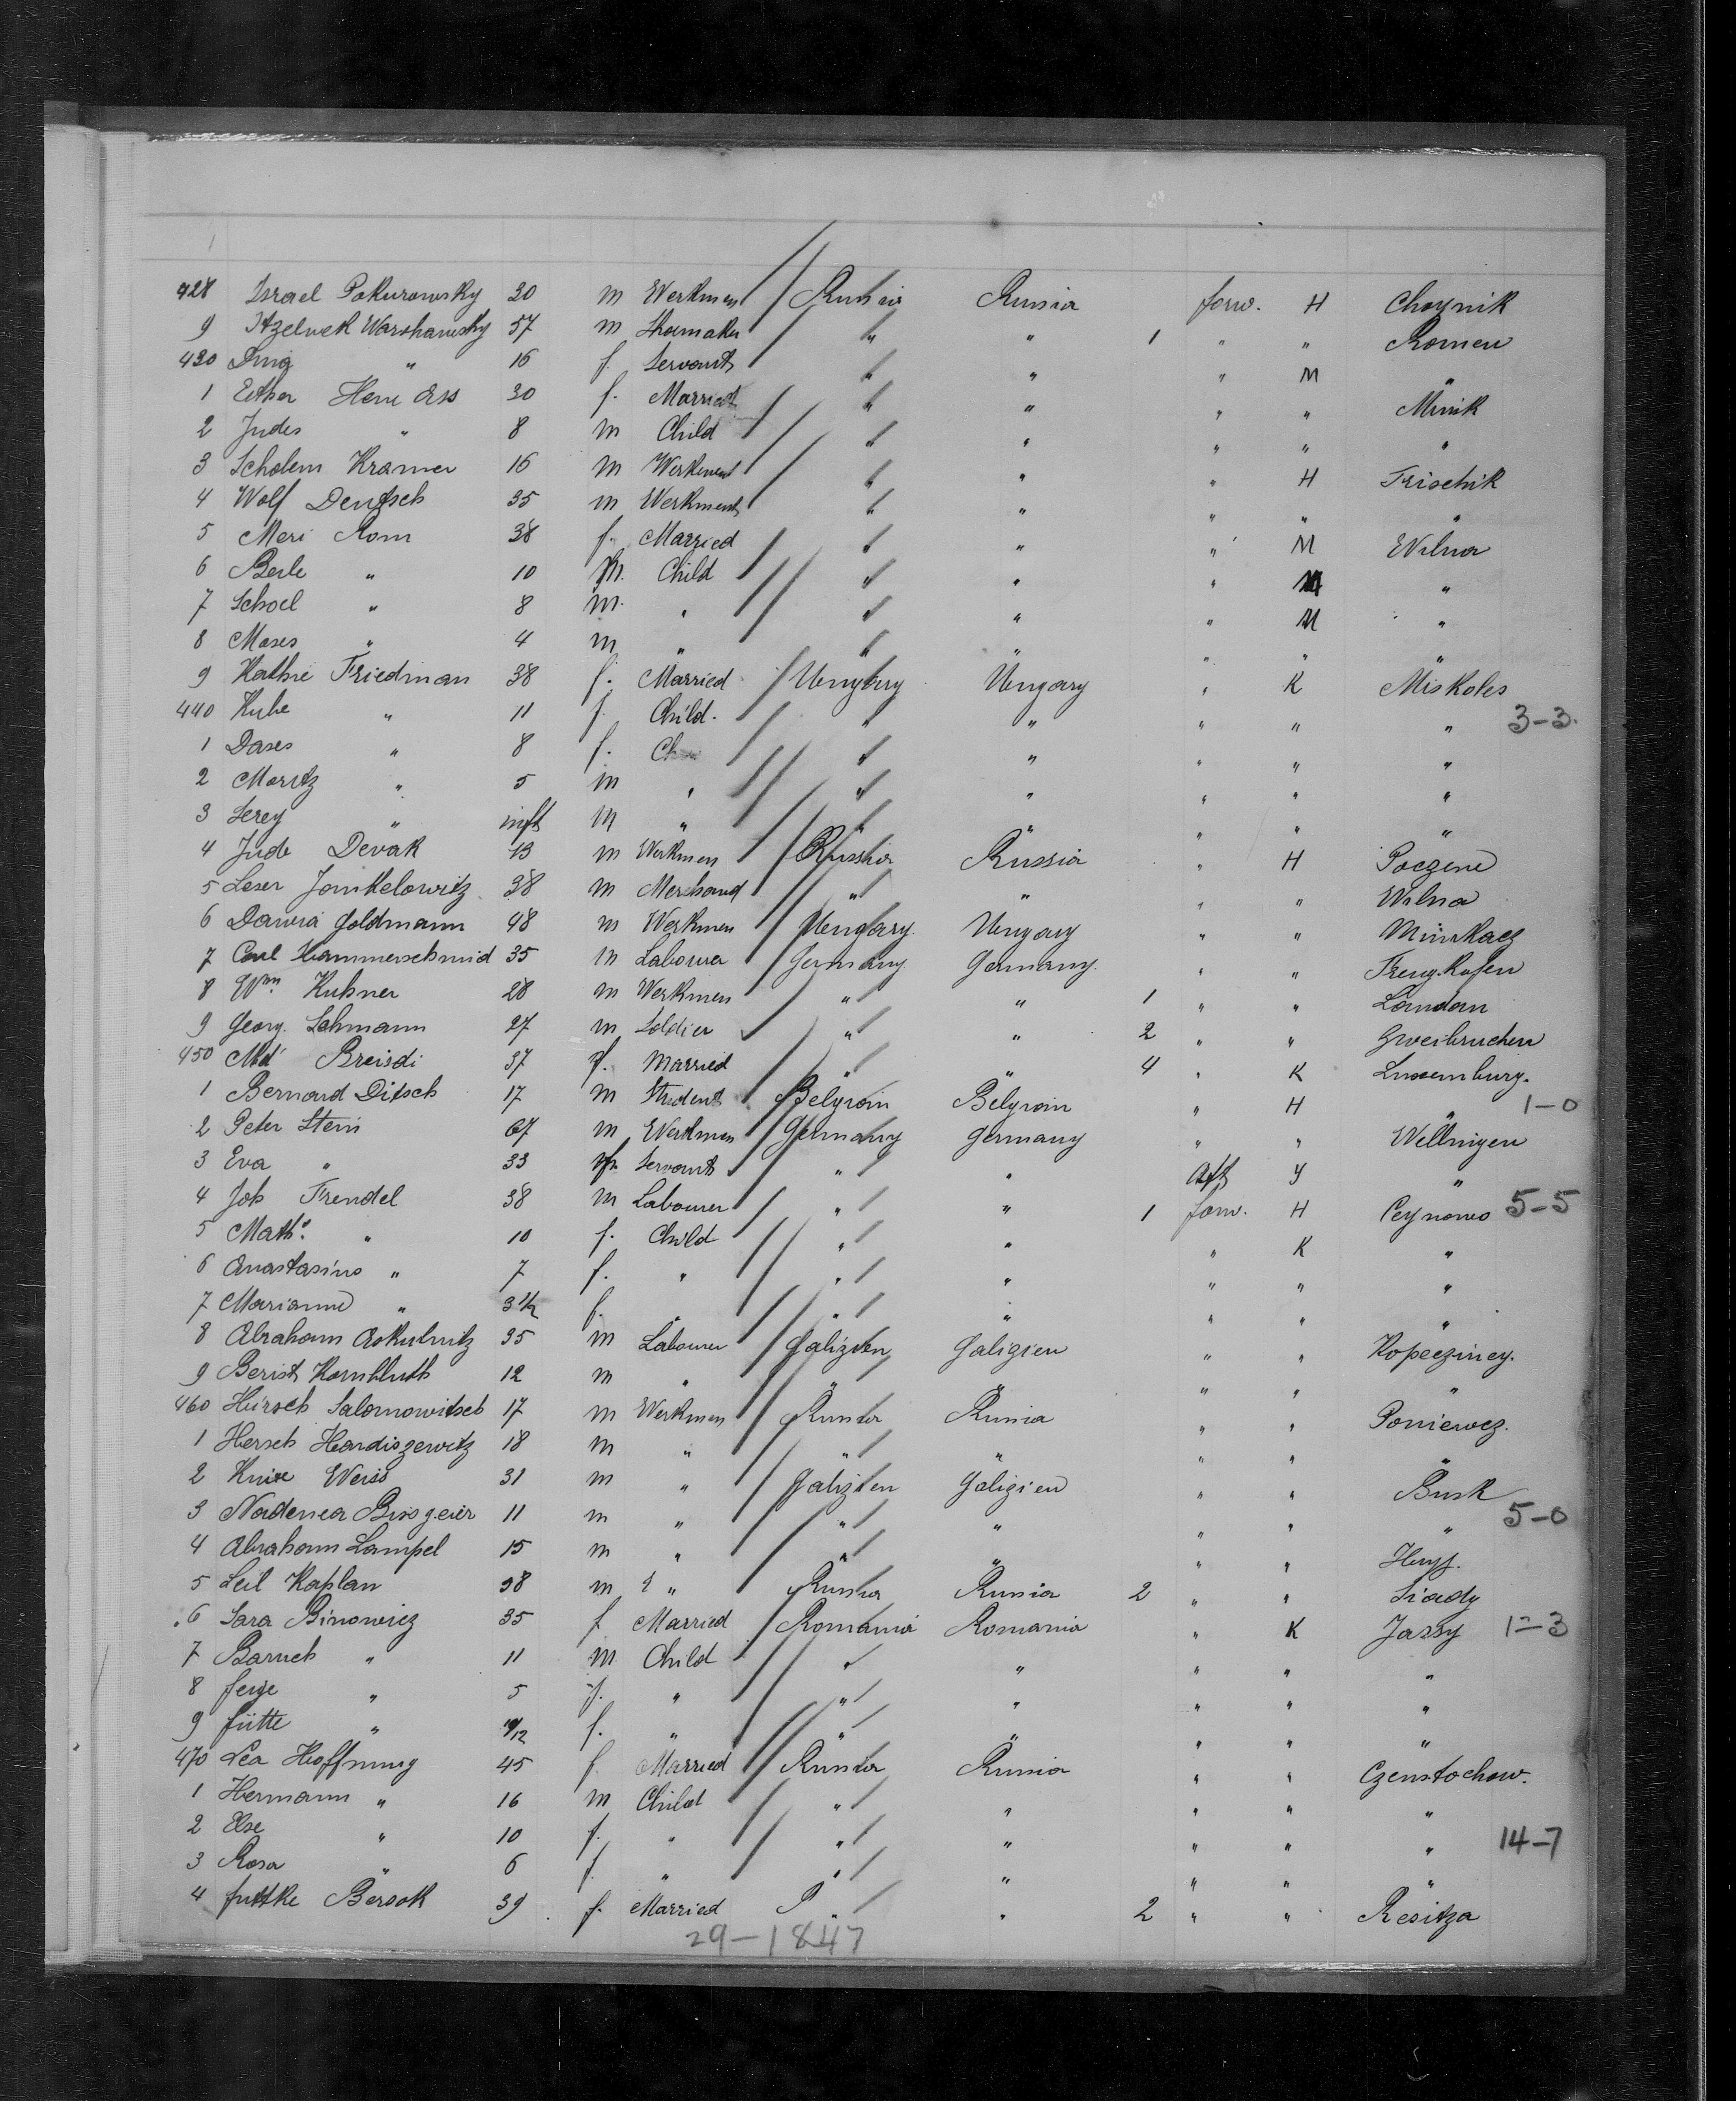 428 Israel Pokurowsky 30 m Werkmen Russia Russia forw. H Choynik
9 Itzelnek Warshawsky 57 m Shoemaker " " 1 " " Romen
430 " 16 f. Servant " " " M "
1 Esther Hene Ass 30 f. Married " " " " Minik
2 Judes " 8 m Child " " " " "
3 Scholem Kramer 16 m Werkment " " " H Trischik
4 Wolf Deutsch 35 m Werkment " " " " "
5 Meri Rom 38 f. Married " " " M Wilna
6 Berle " 10 m. Child " " " M "
7 Schoel " 8 m. " " " " M "
8 Moses " 4 m " " " " " "
9 Kathie Friedman 38 f. Married Ungary Ungary " K Miskoles
440 Kube " 11 f. Child. " " " " " 3-3.
1 Dases " 8 f. " " " " "
2 Moritz " 5 m " " " " " "
3 Serey " inft m " " " " " "
4 Jude Devak 13 m Werkmen Russia Russia " H Poczene
5 Leser Jomkelowitz 38 m Merchand " " " " Wilna
6 Dawia Goldmann 48 m Werkmen Ungary Ungary " " Munkacz
7 Carl Hammerschmid 35 m Labourer Germany Germany " "
8 Wm. Kuhner 28 m Werkmen " " 1 " " Landau
9 Georg. Lehmann 27 m Soldier " " 2 " " Zweibruchen
450 Md Breisdi 37 f. Married " " 4 " K Luxemburg.
1 Bernard Ditsch 17 m Student Belgroin Belgroin " H " 1-0
2 Peter Stein 67 m Werkmen Germany Germany " " Wellingen
3 Eva " 33 f. Servant " " Aft Y "
4 Joh Frendel 38 m Labourer " " 1 forw. H Ceynowo 5-5
5 Math. " 10 f. Child " " " K "
6 Anastasino " 7 f. " " " " " "
7 Marianne " 3 1/2 f. " " " " " "
8 Abraham Askulnitz 35 m Labourer Galizien Galizien " " Kopecziney.
9 Berist Kornbluth 12 m " " " " " "
460 Hirsch Salomowitsch 17 m Werkmen Russia Russia " " Poniewez.
1 Hersch Hardiszewitz 18 m " " " " " "
2 Knise Weiss 31 m " Galizien Galizien " " Busk
3 Nadenea Bissgeier 11 m " " " " " " 5-0
4 Abraham Lampel 15 m " " " " "
5 Leil Kaplan 38 m " Russia Russia 2 " " Siady
6 Sara Binowicz 35 f Married Romania Romania " K Jassy 1-3
7 Baruch " 11 m. Child " " " " "
8 Jenje " 5 f. " " " " " "
9 Jütte " f. " " " " " "
470 Lea Hoffnung 45 f Married Russia Russia " " Czenstochow.
1 Hermann " 16 m Child " " " " "
2 Else " 10 f. " " " " " " 14-7
3 Rosa " 6 f. " " " " " "
4 Juttke Bersok 39 f. Married " " 2 " " Resitza
29-1847